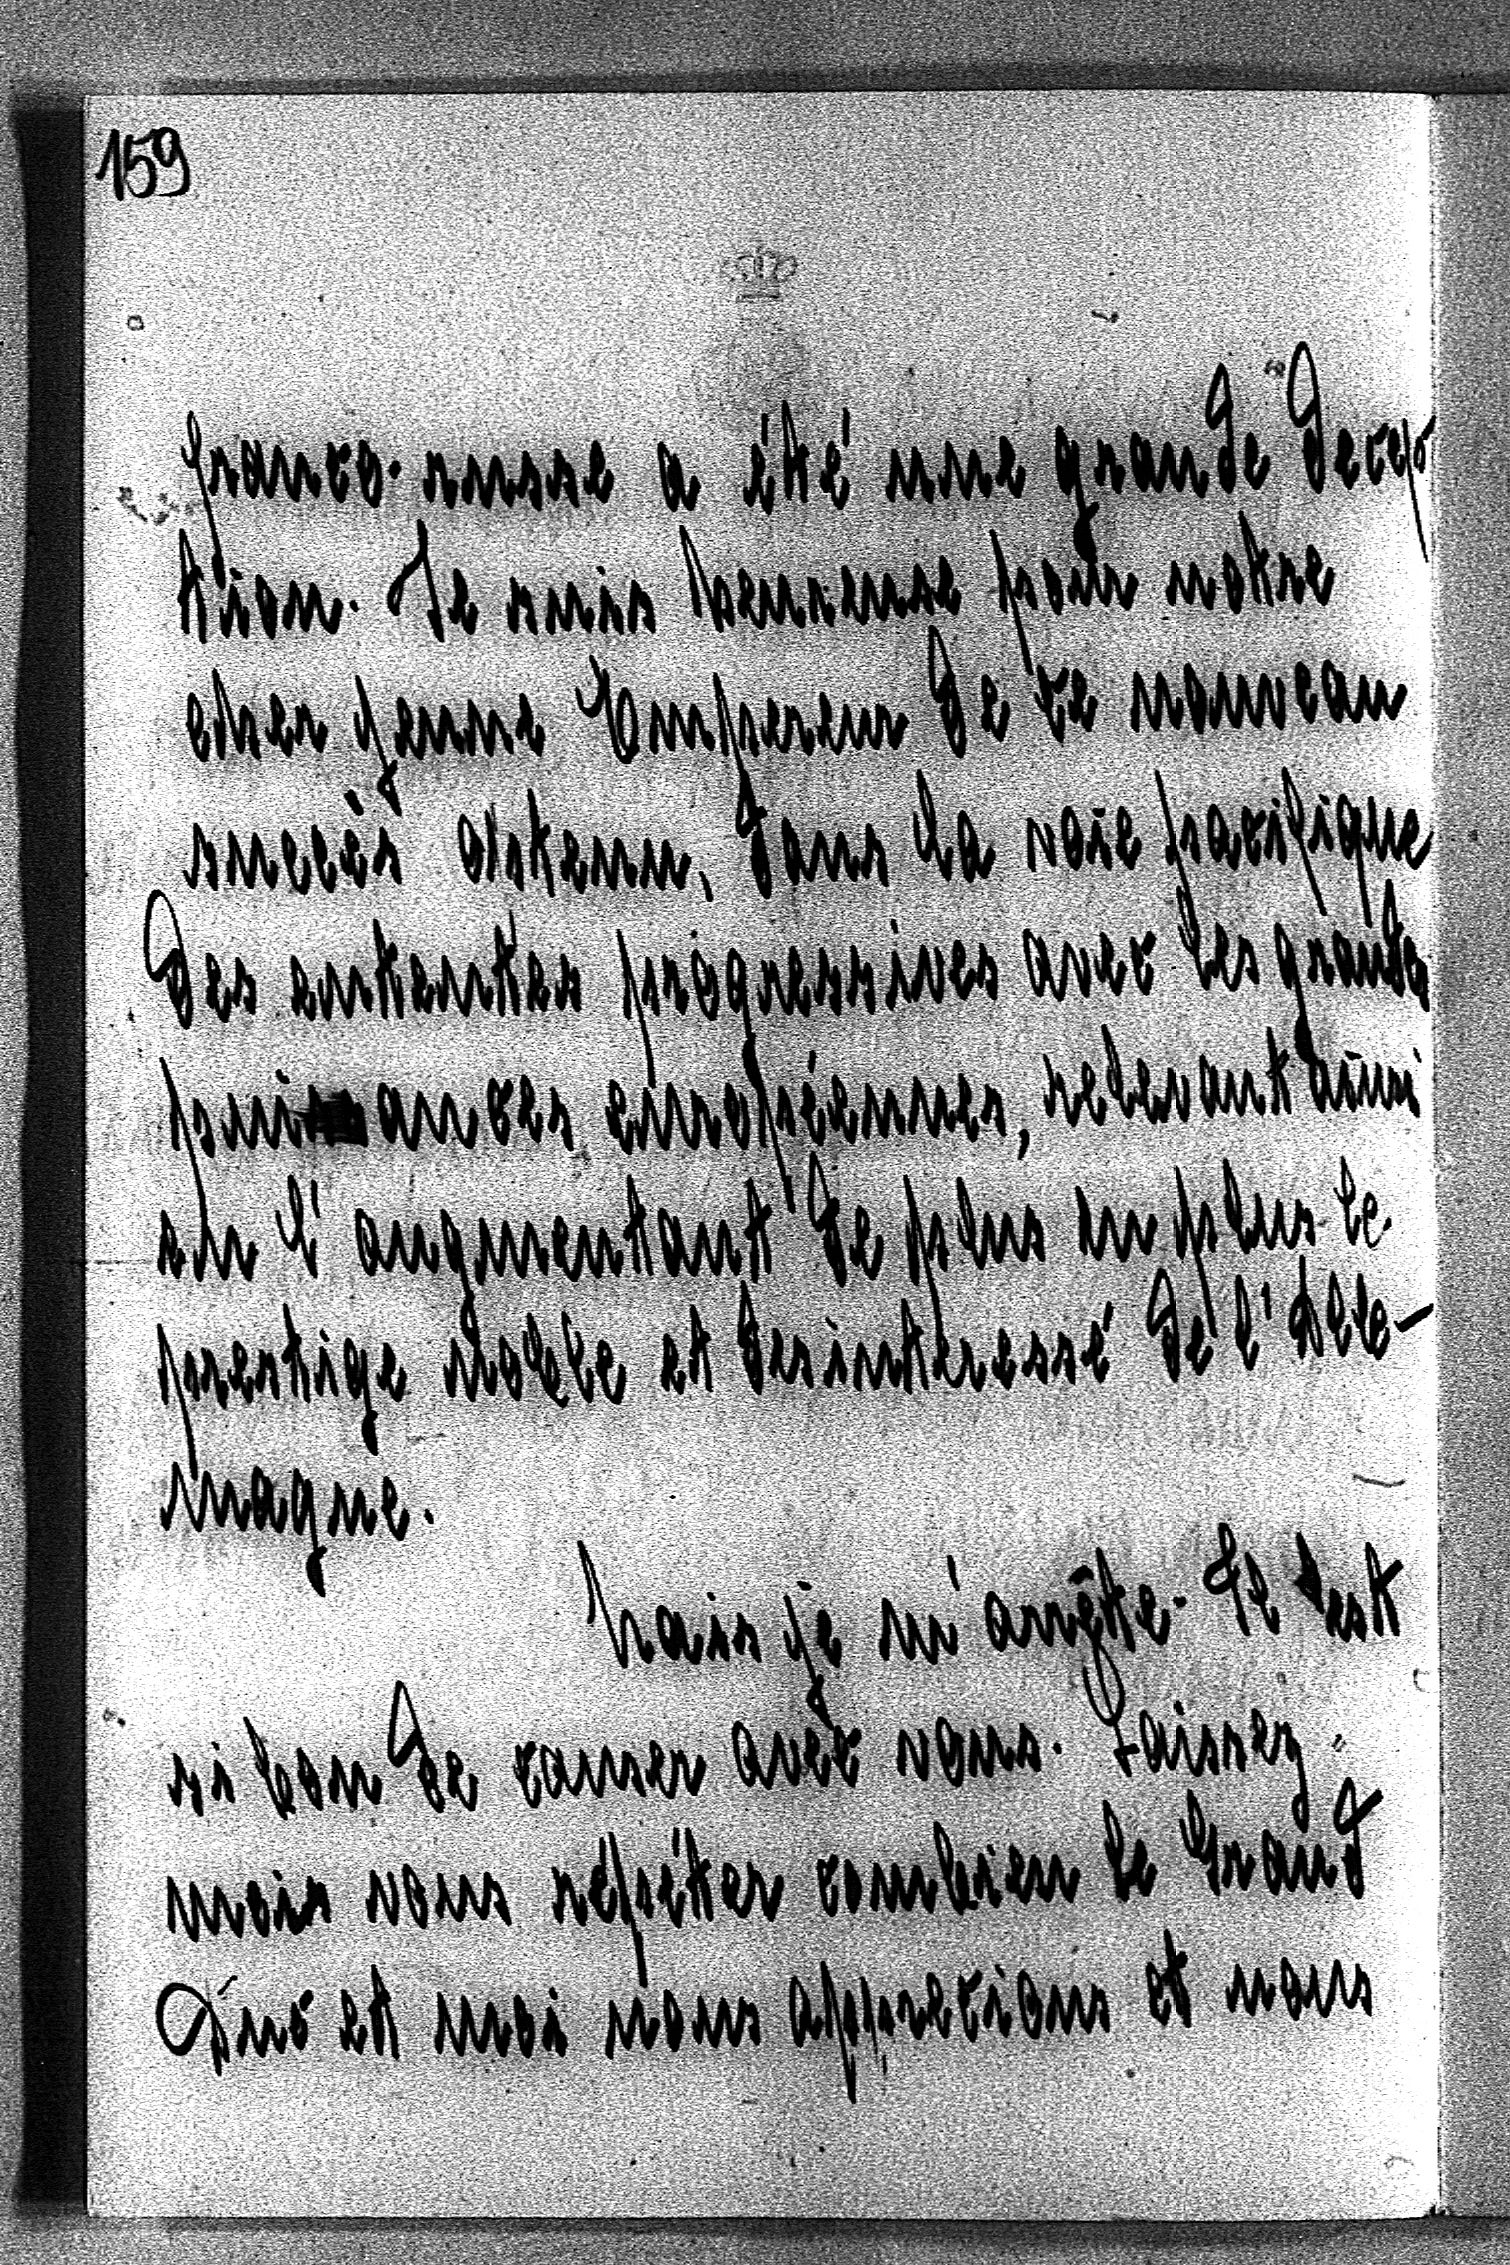 159
franco-russe a été une grande decep
tion. Je suis heureuse pour notre
cher jeune Empereur de ce nouveau
succès obtenu, dans la voie pacifique
des ententes progressives avec les grandes
puissances européennes, relevant ainsi
en l'augmentant de plus en plus le
prestige noble et desintéressé de l'Alle-
magne.
Mais je m'arrête. Il est
si bon de causer avec vous. Laissez-
mois vous répéter combien le Grand
Duc et moi nous apprecions et nous